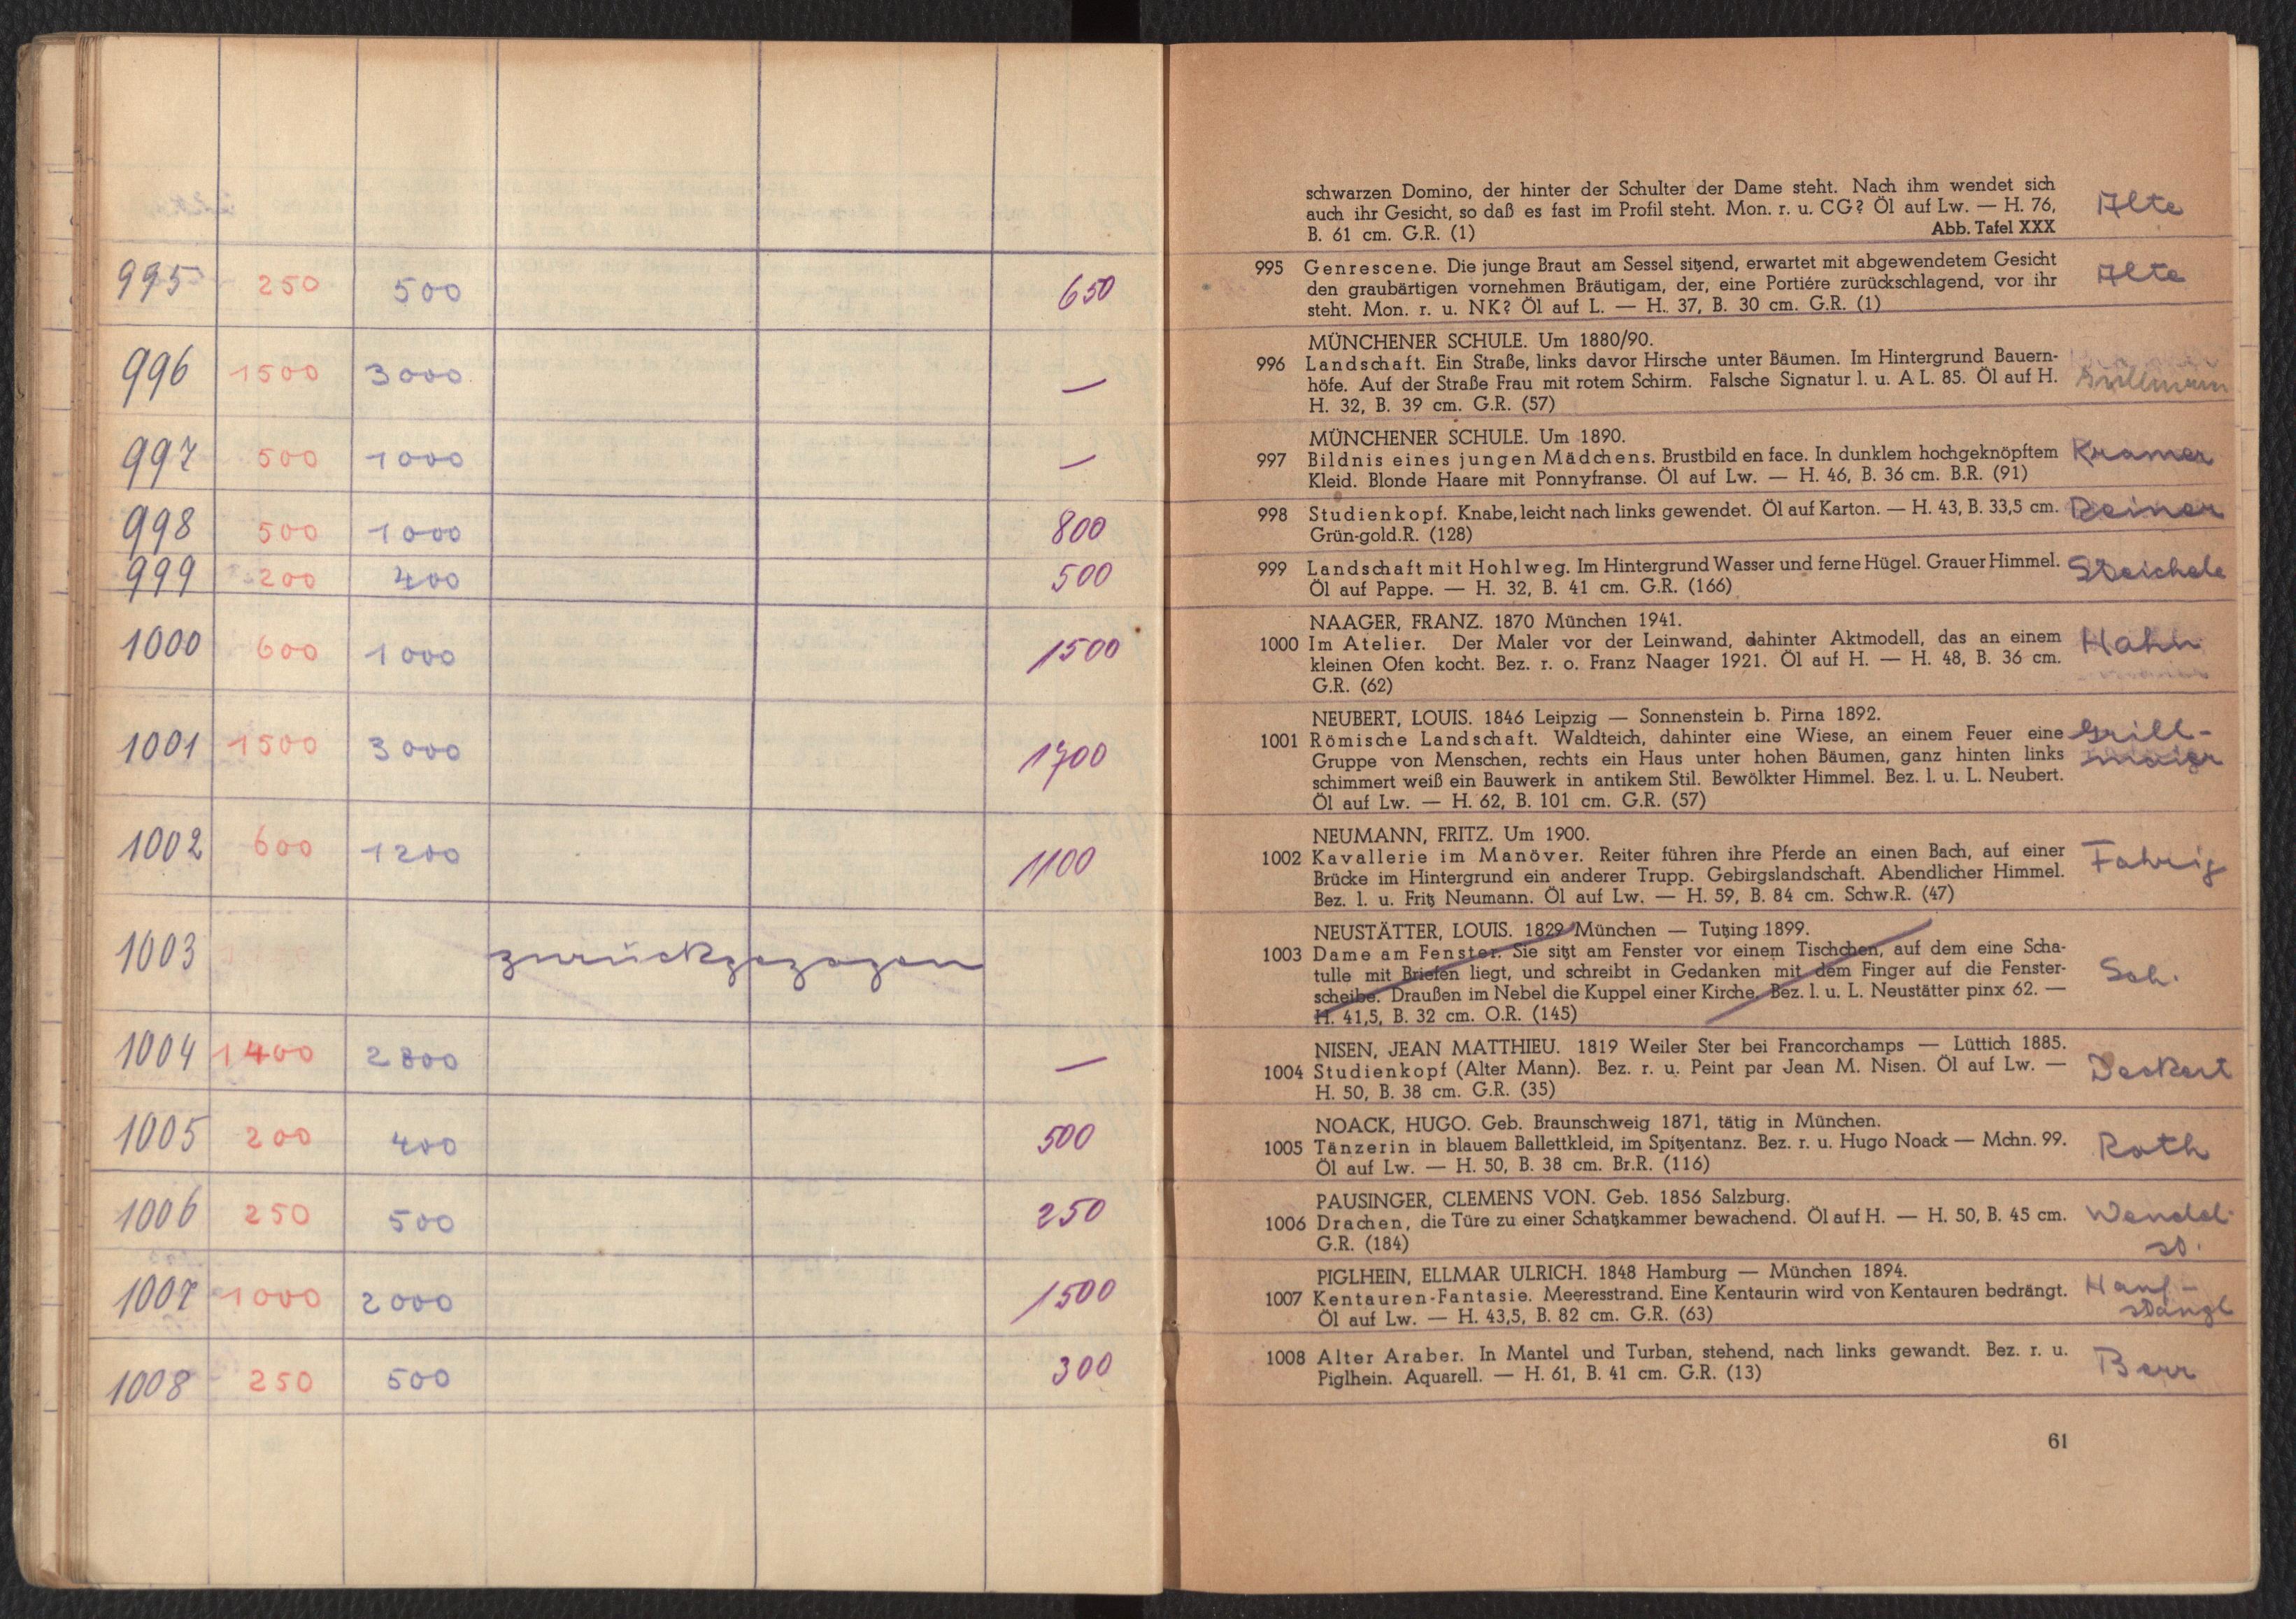 995 250 500 650
996 1500 3000 —
997 500 1000 —
998 500 1000 800
999 200 400 500
1000 600 1000 1500
1001 1500 3000 1700
1002 600 1200 1100
1003 zurückgezogen
1004 1400 2800 —
1005 200 400 500
1006 250 500 250
1007 1000 2000 1500
1008 250 500 300
schwarzen Domino, der hinter der Schulter der Dame steht. Nach ihm wendet sich
auch ihr Gesicht, so daß es fast im Profil steht. Mon. r. u. CG? Öl auf Lw. — H. 76, Alte
B. 61 cm. G.R. (1) Abb. Tafel XXX
995 Genrescene. Die junge Braut am Sessel sitzend, erwartet mit abgewendetem Gesicht Alte
den graubärtigen vornehmen Bräutigam, der, eine Portiére zurückschlagend, vor ihr
steht. Mon. r. u. NK? Öl auf L. — H. 37, B. 30 cm. G.R. (1)
MÜNCHENER SCHULE. Um 1880/90.
996 Landschaft. Ein Straße, links davor Hirsche unter Bäumen. Im Hintergrund Bauern-
höfe. Auf der Straße Frau mit rotem Schirm. Falsche Signatur l. u. A L. 85. Öl auf H.
H. 32, B. 39 cm. G.R. (57)
MÜNCHENER SCHULE. Um 1890.
997 Bildnis eines jungen Mädchens. Brustbild en face. In dunklem hochgeknöpftem Kramer
Kleid. Blonde Haare mit Ponnyfranse. Öl auf Lw. — H. 46, B. 36 cm. B.R. (91)
998 Studienkopf. Knabe, leicht nach links gewendet. Öl auf Karton. — H. 43, B. 33,5 cm. Reiner
Grün-gold.R. (128)
999 Landschaft mit Hohlweg. Im Hintergrund Wasser und ferne Hügel. Grauer Himmel. Steichele
Öl auf Pappe. — H. 32, B. 41 cm. G.R. (166)
NAAGER, FRANZ. 1870 München 1941.
1000 Im Atelier. Der Maler vor der Leinwand, dahinter Aktmodell, das an einem Hahn
kleinen Ofen kocht. Bez. r. o. Franz Naager 1921. Öl auf H. — H. 48, B. 36 cm.
G.R. (62)
NEUBERT, LOUIS. 1846 Leipzig — Sonnenstein b. Pirna 1892.
1001 Römische Landschaft. Waldteich, dahinter eine Wiese, an einem Feuer eine Grill-
Gruppe von Menschen, rechts ein Haus unter hohen Bäumen, ganz hinten links maier
schimmert weiß ein Bauwerk in antikem Stil. Bewölkter Himmel. Bez. l. u. L. Neubert.
Öl auf Lw. — H. 62, B. 101 cm. G.R. (57)
NEUMANN, FRITZ. Um 1900.
1002 Kavallerie im Manöver. Reiter führen ihre Pferde an einen Bach, auf einer Fahrig
Brücke im Hintergrund ein anderer Trupp. Gebirgslandschaft. Abendlicher Himmel.
Bez. l. u. Fritz Neumann. Öl auf Lw. — H. 59, B. 84 cm. Schw.R. (47)
NEUSTÄTTER, LOUIS. 1829 München — Tutzing 1899.
1003 Dame am Fenster. Sie sitzt am Fenster vor einem Tischchen, auf dem eine Scha-
tulle mit Briefen liegt, und schreibt in Gedanken mit dem Finger auf die Fenster- Sch.
scheibe. Draußen im Nebel die Kuppel einer Kirche. Bez. l. u. L. Neustätter pinx 62. —
H. 41,5, B. 32 cm. O.R. (145)
NISEN, JEAN MATTHIEU. 1819 Weiler Ster bei Francorchamps — Lüttich 1885.
1004 Studienkopf (Alter Mann). Bez. r. u. Peint par Jean M. Nisen. Öl auf Lw. — Deckert
H. 50, B. 38 cm. G.R. (35)
NOACK, HUGO. Geb. Braunschweig 1871, tätig in München.
1005 Tänzerin in blauem Ballettkleid, im Spitzentanz. Bez. r. u. Hugo Noack — Mchn. 99. Roth
Öl auf Lw. — H. 50, B. 38 cm. Br.R. (116)
PAUSINGER, CLEMENS VON. Geb. 1856 Salzburg.
1006 Drachen, die Türe zu einer Schatzkammer bewachend. Öl auf H. — H. 50, B. 45 cm. Wendel-
G.R. (184) st.
PIGLHEIN, ELLMAR ULRICH. 1848 Hamburg — München 1894.
1007 Kentauren-Fantasie. Meeresstrand. Eine Kentaurin wird von Kentauren bedrängt. Hanf-
Öl auf Lw. — H. 43,5, B. 82 cm. G.R. (63) stängl
1008 Alter Araber. In Mantel und Turban, stehend, nach links gewandt. Bez. r. u. Barr
Piglhein. Aquarell. — H. 61, B. 41 cm. G.R. (13)
61